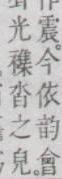 作震。今依韵會
光穕沓之皃。